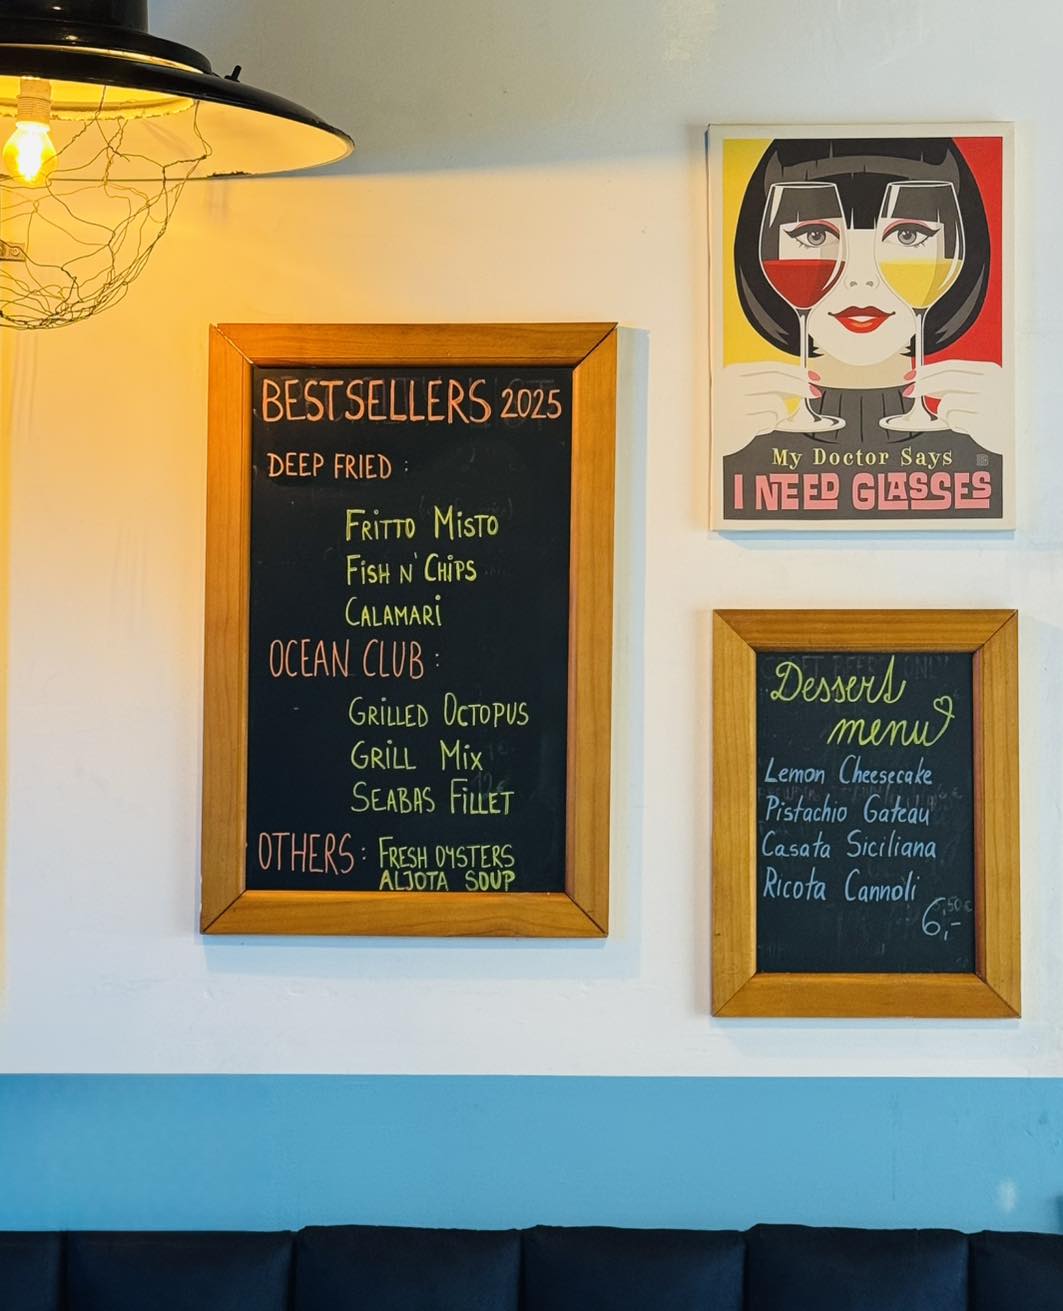 BESTSELLERS 2025
DEEP FRIED :
FRITTO MISTO
FISH N' CHIPS
CALAMARI
OCEAN CLUB :
GRILLED OCTOPUS
GRILL MIX
SEABAS FILLET
OTHERS : FRESH OYSTERS
ALJOTA SOUP
My Doctor Says
I NEED GLASSES
Dessert
menu
Lemon Cheesecake
Pistachio Gateau
Casata Siciliana
Ricota Cannoli
6,-